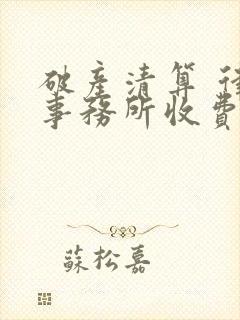 破產清算
事務所收費
蘇松嘉